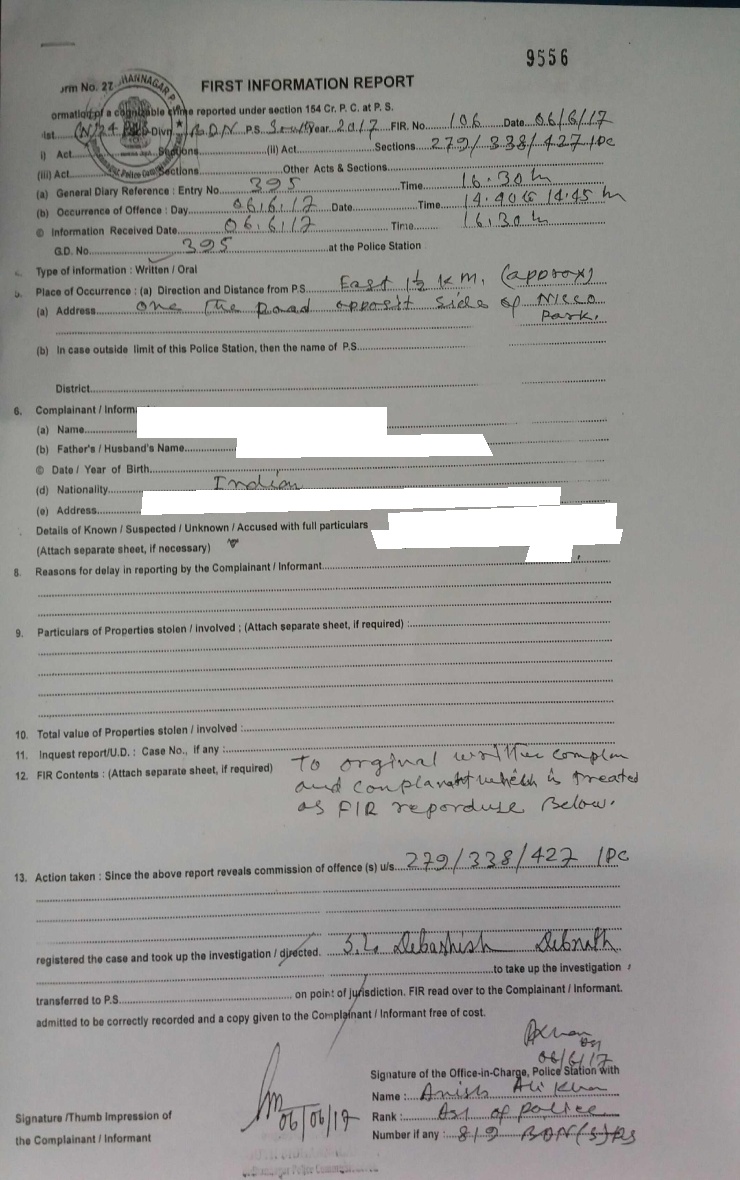 9556
orm No. 27
FIRST INFORMATION REPORT
ormation of a cognizable crime reported under section 154 Cr. P. C. at P. S.
ist. Divn. BDN P.S. South Year 2017 FIR. No 106 Date 06/6/17
i) Act Sections (ii) Act Sections 279/338/427 IPC
(iii) Act Sections Other Acts & Sections
(a) General Diary Reference : Entry No 395 Time 16.30 h
(b) Occurrence of Offence : Day 06.6.17 Date Time 14.40 to 14.45 h
© Information Received Date 06.6.17 Time 16.30 h
G.D. No 395 at the Police Station
Type of information : Written / Oral
Place of Occurrence : (a) Direction and Distance from P.S. East 1½ K.M. (approx)
(a) Address one the road opposit side of Nicco
Park.
(b) In case outside limit of this Police Station, then the name of P.S.
District
6. Complainant / Inform
(a) Name
(b) Father's / Husband's Name
© Date / Year of Birth
(d) Nationality Indian
(e) Address
Details of Known / Suspected / Unknown / Accused with full particulars
(Attach separate sheet, if necessary)
8. Reasons for delay in reporting by the Complainant / Informant
9. Particulars of Properties stolen / involved ; (Attach separate sheet, if required) :
10. Total value of Properties stolen / involved :
11. Inquest report/U.D. : Case No., if any :
12. FIR Contents : (Attach separate sheet, if required) To orginal written complan
and complanant which is treated
as FIR reporduse Below.
13. Action taken : Since the above report reveals commission of offence (s) u/s 279/338/427 IPC
registered the case and took up the investigation / directed. S.I. Debashish Debnath
to take up the investigation
transferred to P.S. on point of jurisdiction. FIR read over to the Complainant / Informant.
admitted to be correctly recorded and a copy given to the Complainant / Informant free of cost.
06/6/17
Signature of the Office-in-Charge, Police Station with
Name : Anish Ali Khan
06/06/17
Signature /Thumb Impression of
Rank : ASI of police
the Complainant / Informant
Number if any : 819 BDN(S)PS